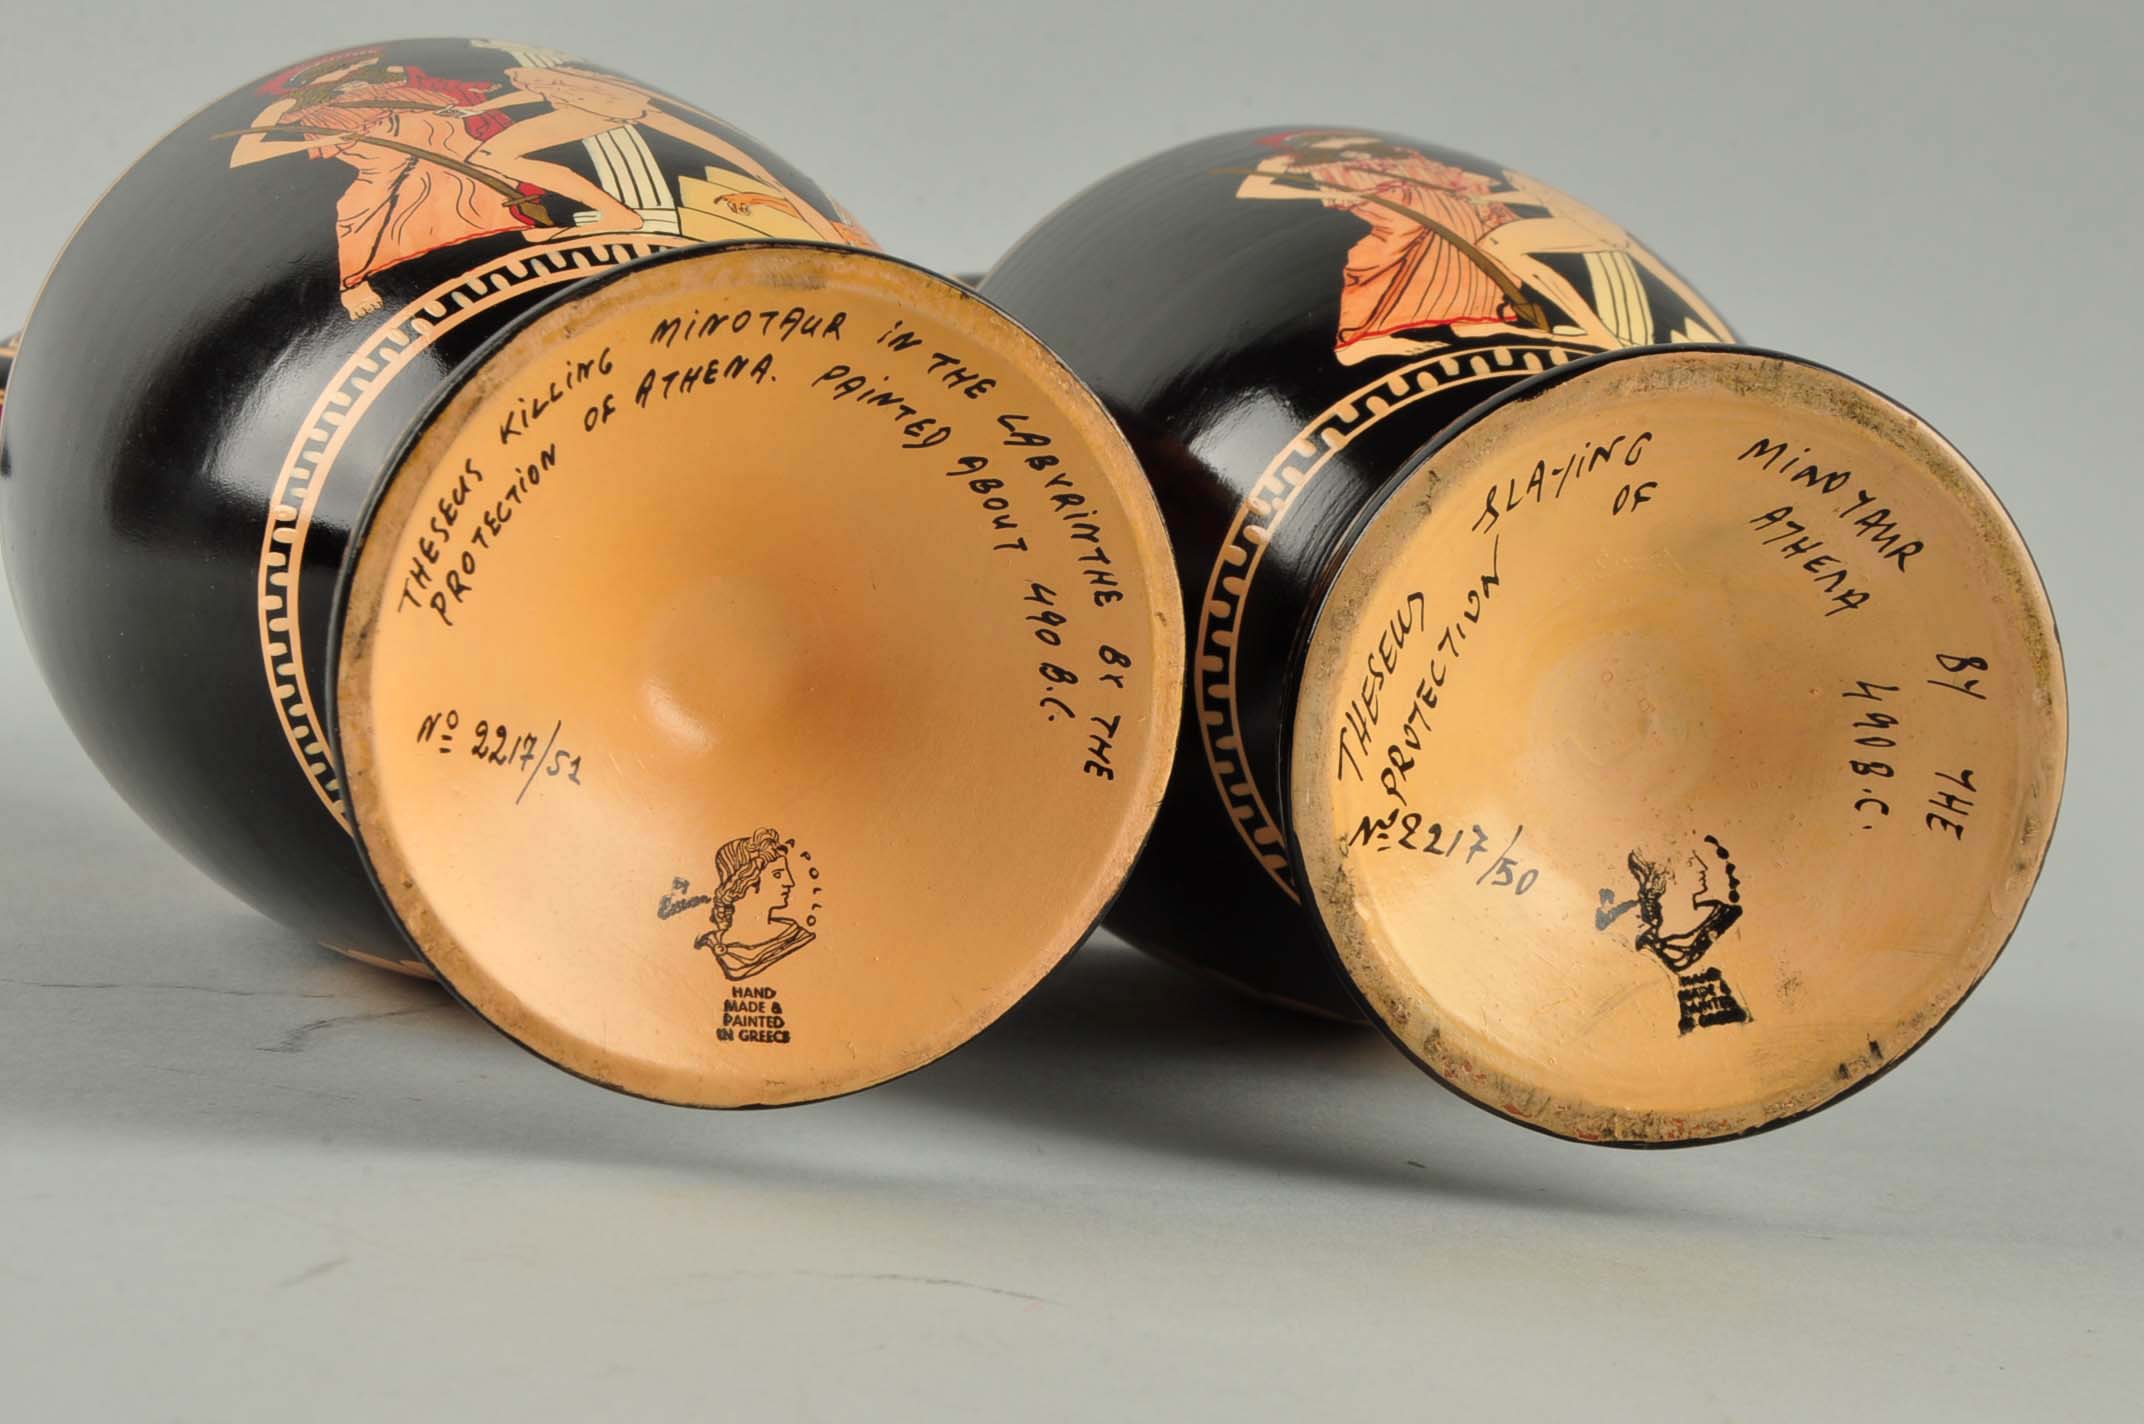 THESEUS KILLING MINOTAUR IN THE LABYRINTHE BY THE
PROTECTION OF ATHENA. PAINTED ABOUT 490 B.C.
No 2217/51
APOLLO
HAND
MADE &
PAINTED
IN GREECE
THESEUS SLAYING MINOTAUR BY THE
PROTECTION OF ATHENA 490 B.C.
No 2217/50